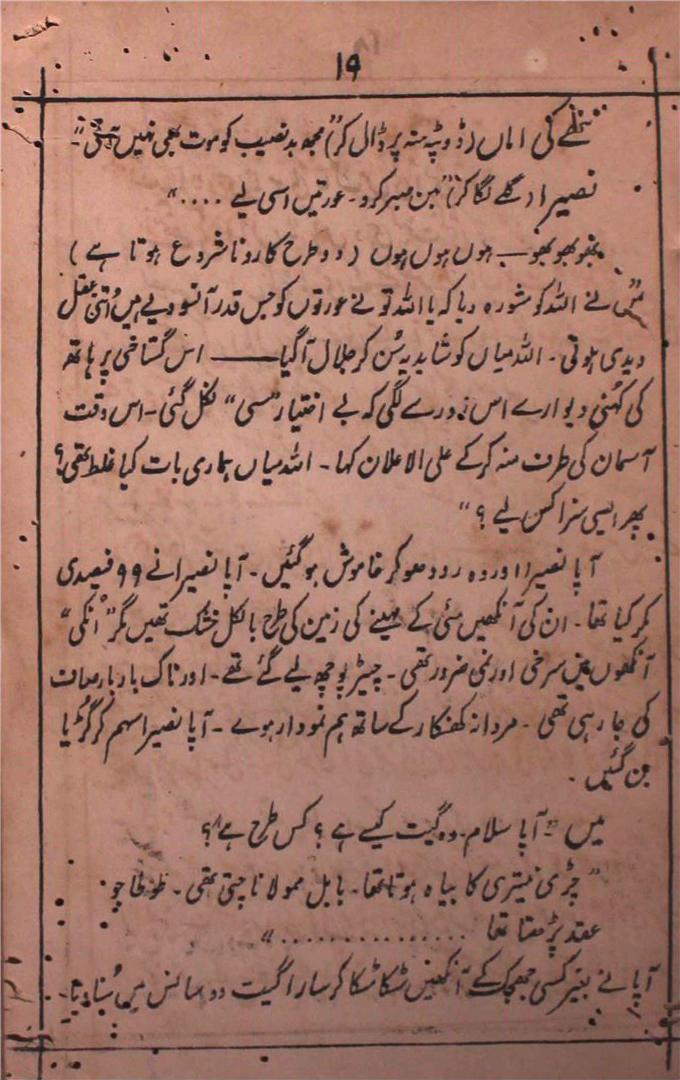 ۱۹
ننھے کی اماں (ڈوپٹہ منہ پر ڈال کر) "مجھ بدنصیب کو موت بھی نہیں آتی"۔
نصیرا (گلے لگا کر) "بہن صبر کرو۔ عورتیں اسی لیے ...."
بھو بھو بھو — ہوں ہوں ہوں (دو طرح کا رونا شروع ہوتا ہے)
میں نے اللہ کو مشورہ دیا کہ یا اللہ تو نے عورتوں کو جس قدر آنسو دیے ہیں اُتنی عقل
دیدی ہوتی۔ اللہ میاں کو شاید یہ سُن کر جلال آگیا — اس گستاخی پر ہاتھ
کی کہنی دیوار سے اس زور سے لگی کہ بے اختیار "سی" نکل گئی۔ اس وقت
آسمان کی طرف منہ کر کے علی الاعلان کہا۔ اللہ میاں ہماری بات کیا غلط تھی؟
پھر ایسی سزا کس لیے؟"
آپا نصیرا اور وہ رو دھو کر خاموش ہوگئیں۔ آپا نصیرا نے ۹۹ فیصدی
مکر کیا تھا۔ ان کی آنکھیں مئی کے مہینے کی زمین کی طرح بالکل خشک تھیں مگر "اُنکی"
آنکھوں میں سرخی اور نمی ضرور تھی۔ چیپڑ پوچھ لیے گئے تھے۔ اور ناک بار بار صاف
کی جا رہی تھی۔ مردانہ کھنکار کے ساتھ ہم نمودار ہوے۔ آپا نصیرا سہم کر گڑیا
بن گئیں۔
میں "آپا سلام۔ وہ گیت کیسے ہے؟ کس طرح ہے؟"
"چڑی تیتری کا بیاہ ہوتا تھا۔ بابل ممولا ناچتی تھی۔ طوطا جو
عقد پڑھتا تھا ..............."
آپا نے بغیر کسی جھجک کے آنکھیں مٹکا مٹکا کر سارا گیت دو سانس میں سُنا دیا۔